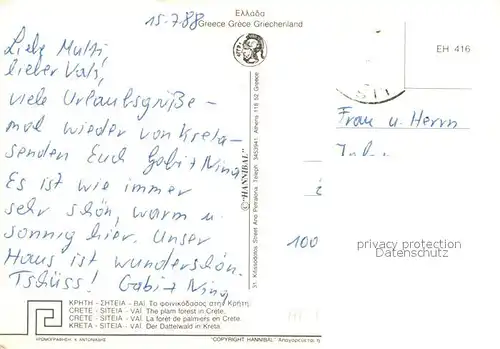 15-7.88
Ελλάδα
Greece Grèce Griechenland
EH 416
Liebe Mutti,
lieber Vati,
viele Urlaubsgrüße -
mal wieder von Kreta -
senden Euch Gabi + Nina
Es ist wie immer
sehr schön, warm u.
sonnig hier. Unser
Haus ist wunderschön.
Tschüss! Gabi + Nina
©"HANNIBAL"
31, Krissodolis, Street Ano Petralona Teleph. 3453941 Athens 118 52 Greece
Frau u. Herrn
100
privacy protection
Datenschutz
ΚΡΗΤΗ - ΣΗΤΕΙΑ - ΒΑΪ. Το φοινικόδασος στην Κρήτη.
CRETE - SITEIA - VAÏ. The plam forest in Crete.
CRETE - SITEIA - VAÏ. La forêt de palmiers en Crete.
KRETA - SITEIA - VAÏ. Der Dattelwald in Kreta.
ΧΡΩΜΟΓΡΑΦΗΣΗ: Κ. ΑΝΤΩΝΙΑΔΗΣ
"COPYRIGHT HANNIBAL" Απαγορεύεται η